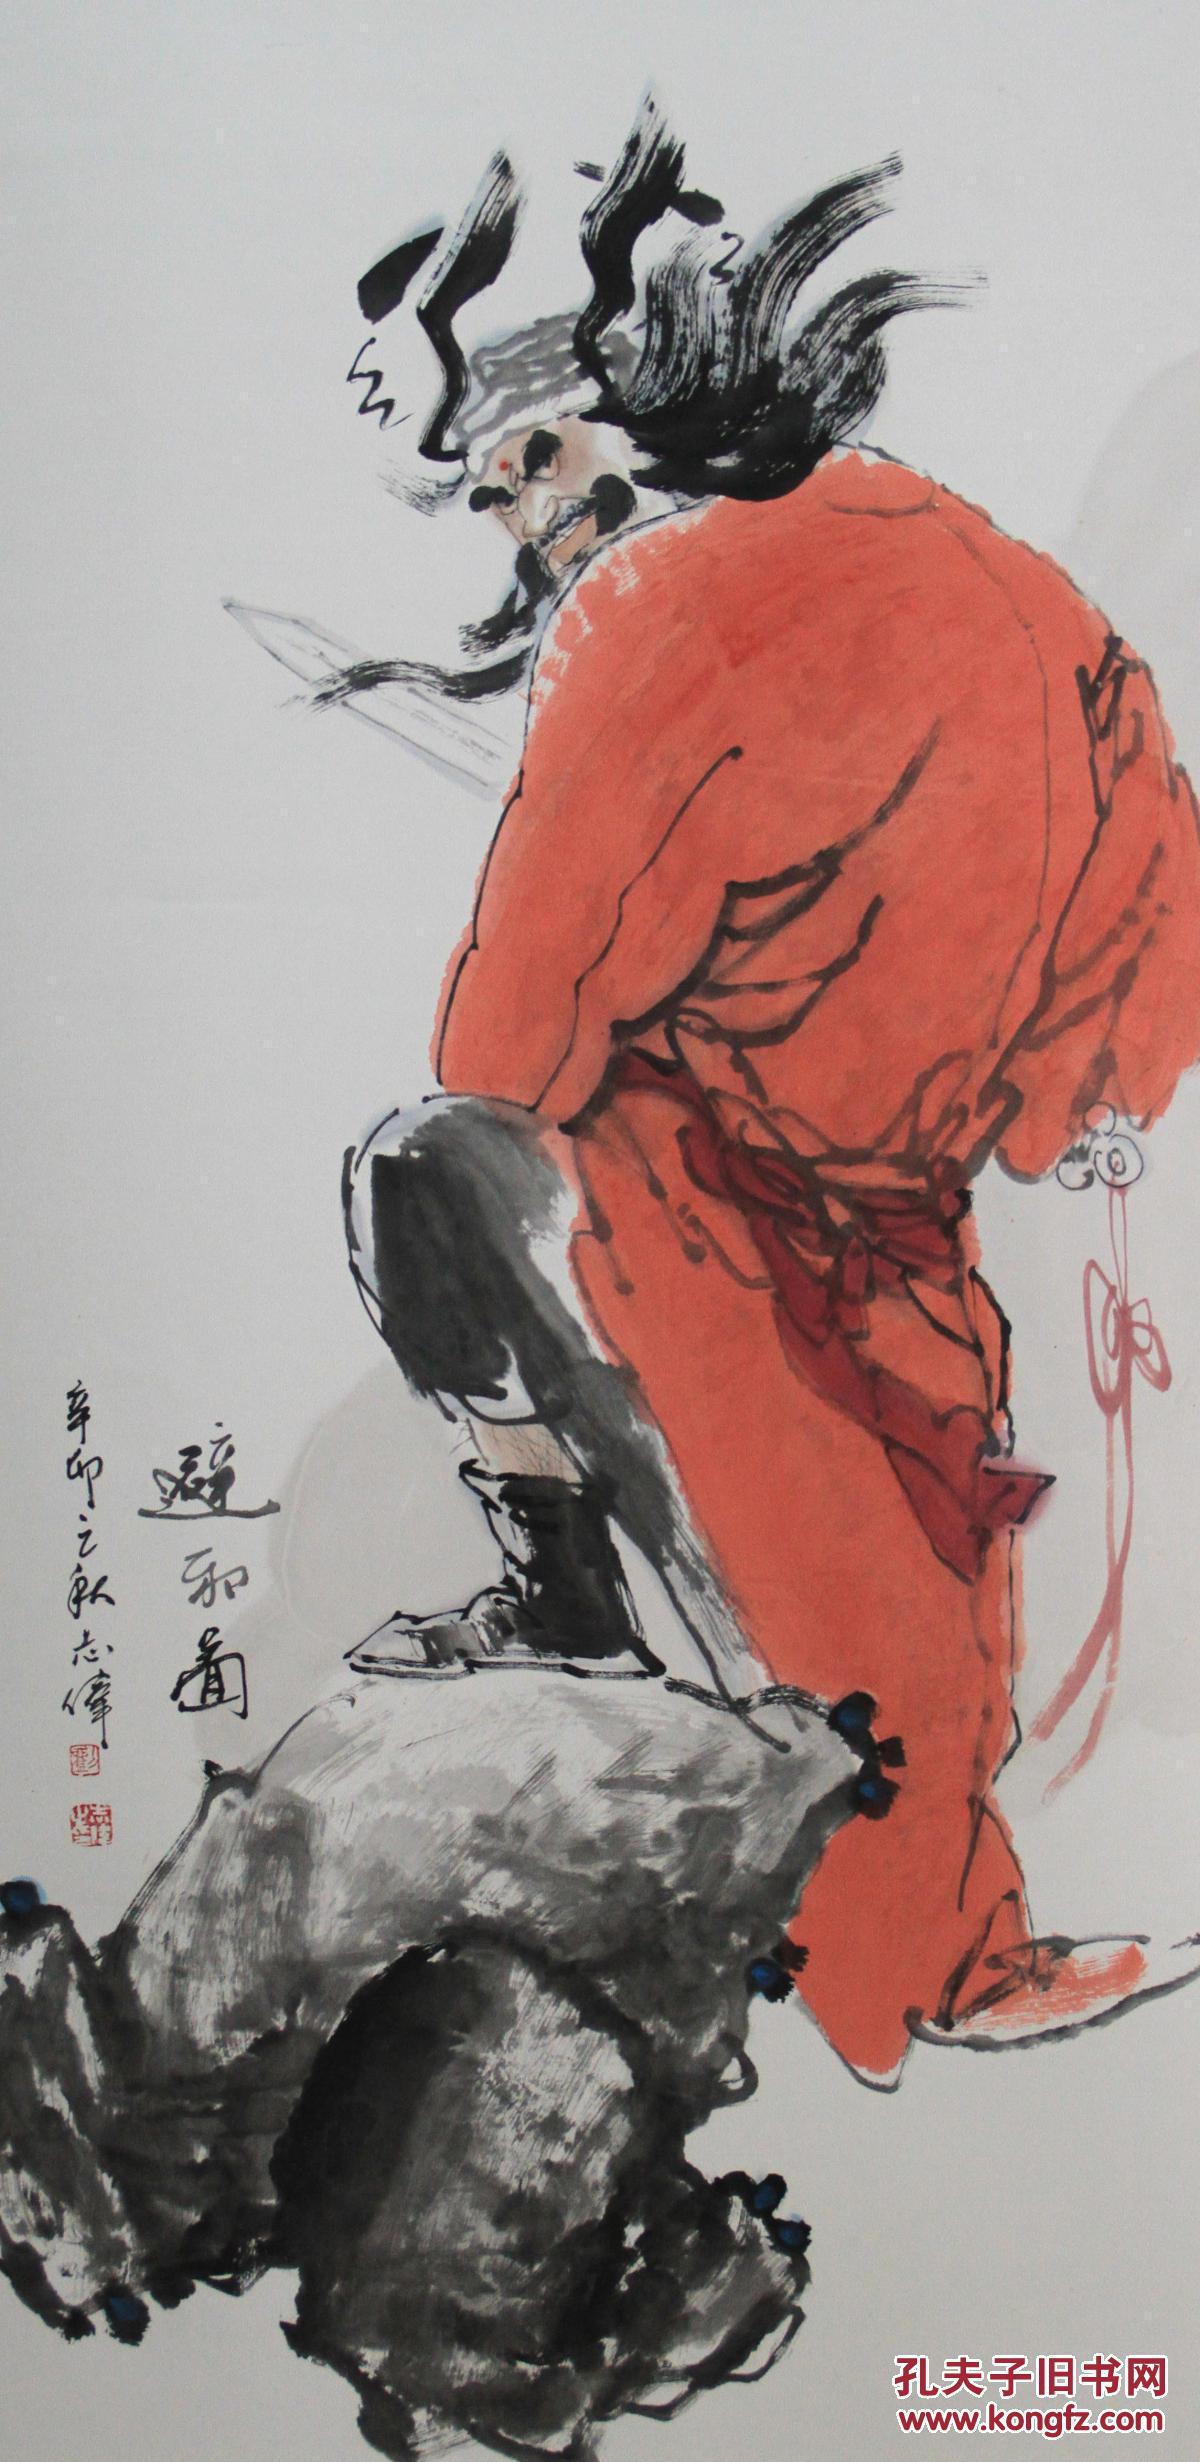 避邪圖
辛卯之秋志偉
孔夫子旧书网
www.kongfz.com